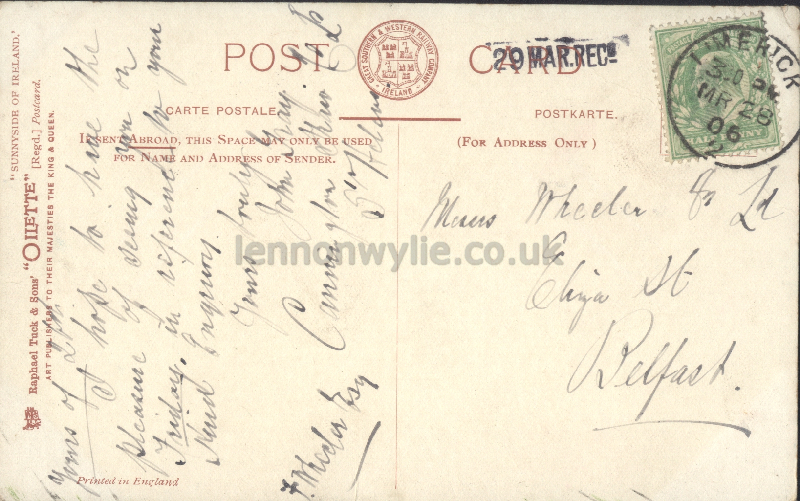 POST CARD
GREAT SOUTHERN & WESTERN RAILWAY COMPANY
IRELAND
29 MAR. REC^D
LIMERICK
MR 28
06
CARTE POSTALE.
POSTKARTE.
IF SENT ABROAD, THIS SPACE MAY ONLY BE USED
FOR NAME AND ADDRESS OF SENDER.
(FOR ADDRESS ONLY)
"SUNNYSIDE OF IRELAND."
Raphael Tuck & Sons' "OILETTE" [Regd.] Postcard.
ART PUBLISHERS TO THEIR MAJESTIES THE KING & QUEEN.
Yours of
I hope to have the
pleasure of seeing you on
Friday. in reference to your
kind Enquiry.
Yours truly
John
Cannington
St Helens
J. Wheeler Esq
Messrs Wheeler & Co Ld
Eliza St
Belfast.
Printed in England
lennonwylie.co.uk